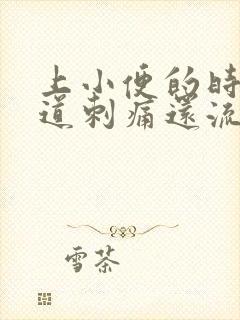 上小便的時
道刺痛還流
雪茶